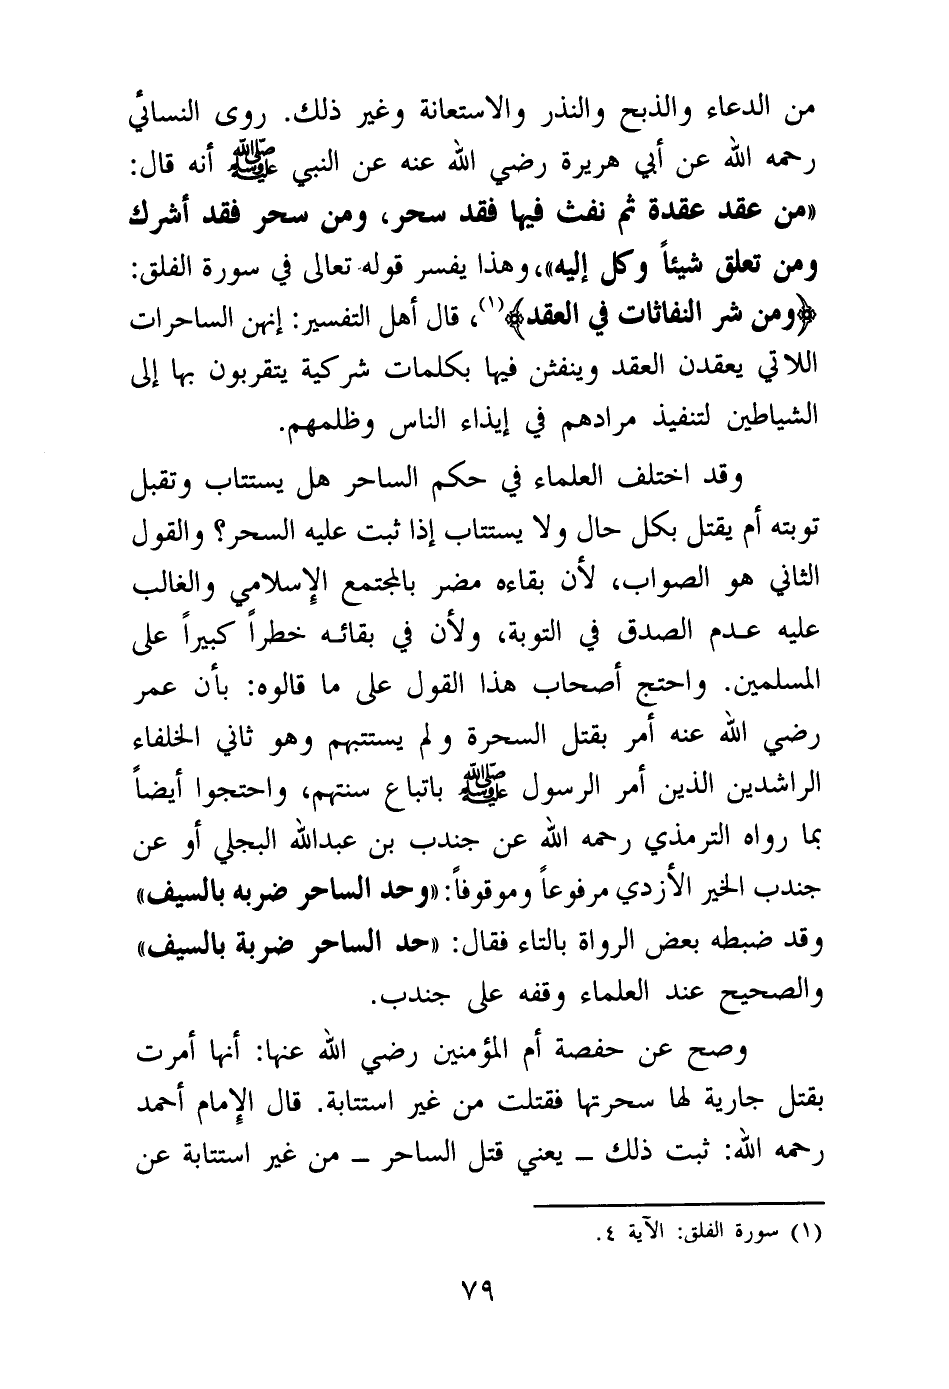 من الدعاء والذبح والنذر والاستعانة وغير ذلك. روى النسائي
رحمه الله عن أبي هريرة رضي الله عنه عن النبي ﷺ أنه قال:
«من عقد عقدة ثم نفث فيها فقد سحر، ومن سحر فقد أشرك
ومن تعلق شيئاً وكل إليه»، وهذا يفسر قوله تعالى في سورة الفلق:
﴿ومن شر النفاثات في العقد﴾(١)، قال أهل التفسير: إنهن الساحرات
اللاتي يعقدن العقد وينفثن فيها بكلمات شركية يتقربون بها إلى
الشياطين لتنفيذ مرادهم في إيذاء الناس وظلمهم.
وقد اختلف العلماء في حكم الساحر هل يستتاب وتقبل
توبته أم يقتل بكل حال ولا يستتاب إذا ثبت عليه السحر؟ والقول
الثاني هو الصواب، لأن بقاءه مضر بالمجتمع الإسلامي والغالب
عليه عدم الصدق في التوبة، ولأن في بقائه خطراً كبيراً على
المسلمين. واحتج أصحاب هذا القول على ما قالوه: بأن عمر
رضي الله عنه أمر بقتل السحرة ولم يستتبهم وهو ثاني الخلفاء
الراشدين الذين أمر الرسول ﷺ باتباع سنتهم، واحتجوا أيضاً
بما رواه الترمذي رحمه الله عن جندب بن عبدالله البجلي أو عن
جندب الخير الأزدي مرفوعاً وموقوفاً: «وحد الساحر ضربه بالسيف»
وقد ضبطه بعض الرواة بالتاء فقال: «حد الساحر ضربة بالسيف»
والصحيح عند العلماء وقفه على جندب.
وصح عن حفصة أم المؤمنين رضي الله عنها: أنها أمرت
بقتل جارية لها سحرتها فقتلت من غير استتابة. قال الإمام أحمد
رحمه الله: ثبت ذلك ـ يعني قتل الساحر ـ من غير استتابة عن
(١) سورة الفلق: الآية ٤.
٧٩